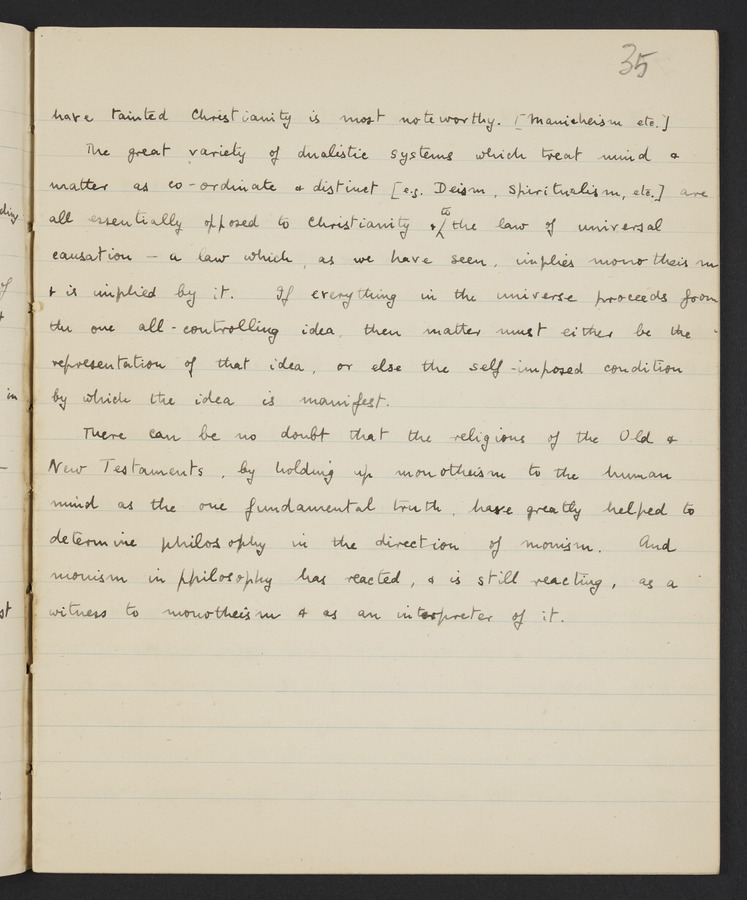 35
have tainted Christianity is most noteworthy. [Manicheism etc.]
The great variety of dualistic systems which treat mind &
matter as co-ordinate & distinct [e.g. Deism, Spiritualism, etc.] are
all essentially opposed to Christianity & to the law of universal
causation — a law which, as we have seen, implies monotheism
& is implied by it. If everything in the universe proceeds from
the one all-controlling idea, then matter must either be the
representation of that idea, or else the self-imposed condition
by which the idea is manifest.
There can be no doubt that the religions of the Old &
New Testaments, by holding up monotheism to the human
mind as the one fundamental truth, have greatly helped to
determine philosophy in the direction of monism. And
monism in philosophy has reacted, & is still reacting, as a
witness to monotheism & as an interpreter of it.